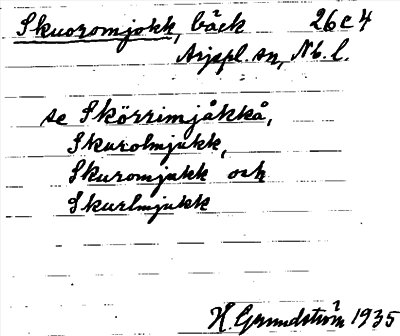 Skuoromjokk, bäck 26 C 4
Arjepl. sn, Nb. l.
se Skörrimjåkkå,
Skurolmjukk,
Skuromjukk och
Skurlmjukk
H. Grundström 1935